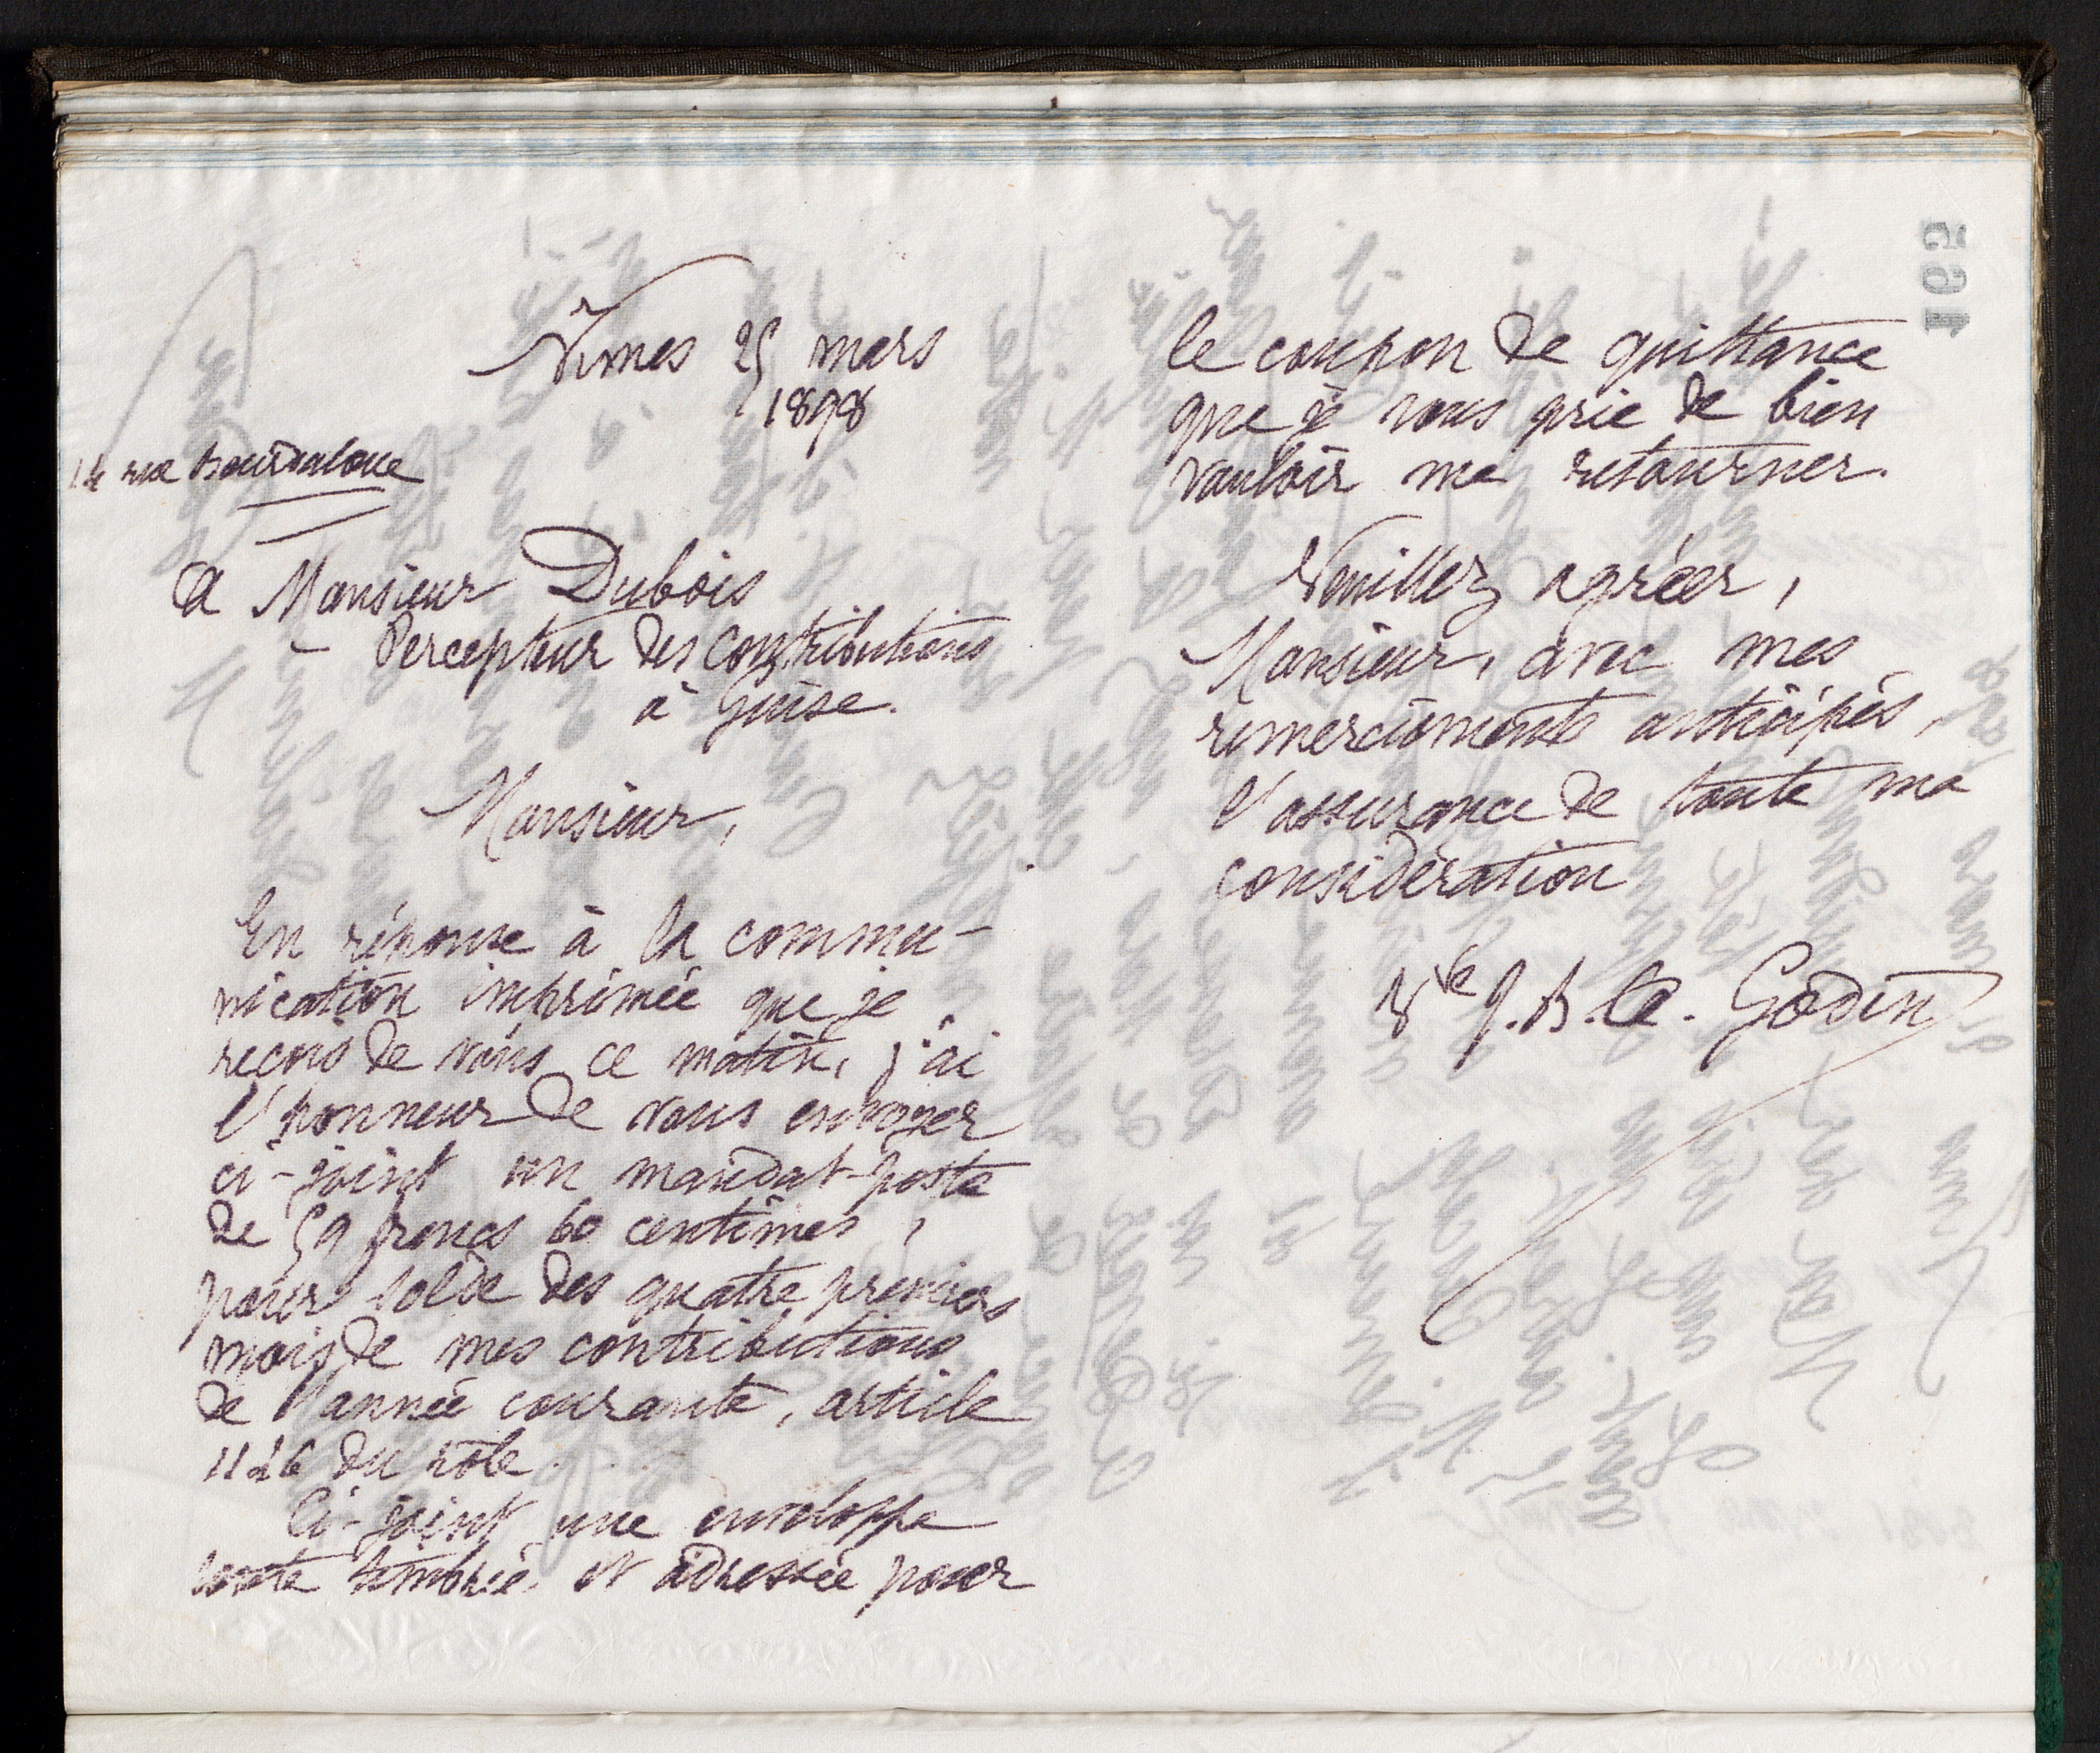 165
Nîmes 25 mars
1898
14 rue Bourdaloue
A Monsieur Dubois
Percepteur des contributions
à Guise.
Monsieur,
En réponse à la commu-
nication imprimée que je
reçois de vous ce matin, j'ai
l'honneur de vous envoyer
ci-joint un mandat-poste
de 59 francs 60 centimes,
pour solde des quatre premiers
mois de mes contributions
de l'année courante, article
1126 du rôle.
Ci-joint une enveloppe
toute timbrée et adressée pour
le coupon de quittance
que je vous prie de bien
vouloir me retourner.
Veuillez agréer,
Monsieur, avec mes
remerciements anticipés,
l'assurance de toute ma
considération
Vve J. B. te. Godin